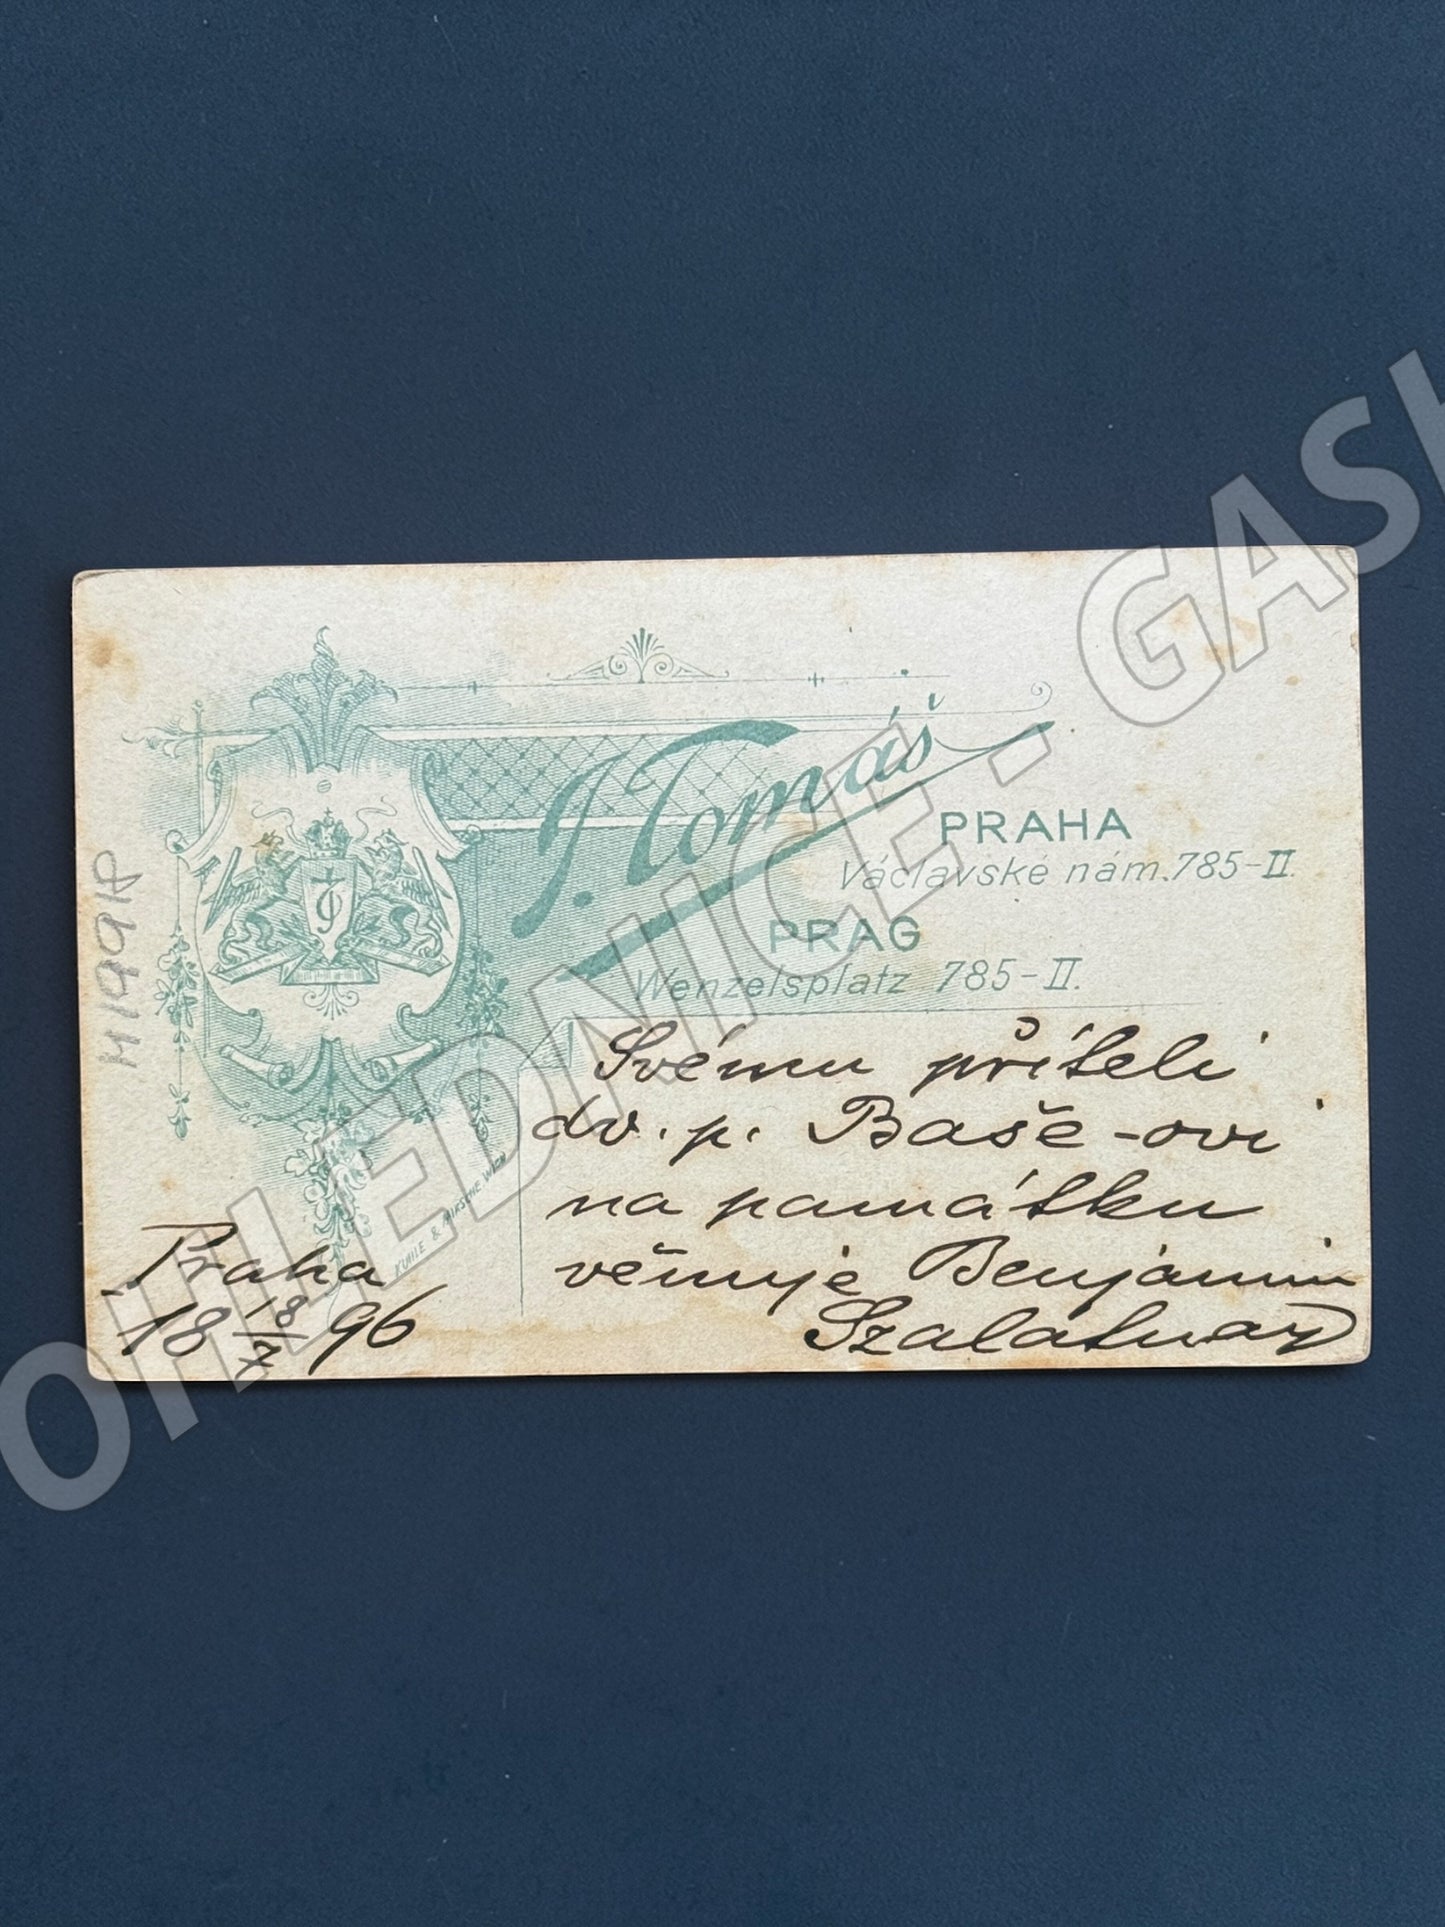 J. Tomáš
PRAHA
Václavské nám. 785-II.
PRAG
Wenzelsplatz 785-II.
Svému příteli
dv. p. Baše-ovi
na památku
věnuje Benjámin
Szalatnay
Praha
18 18/7 96
WIEN
OHLEDNICE - GASH